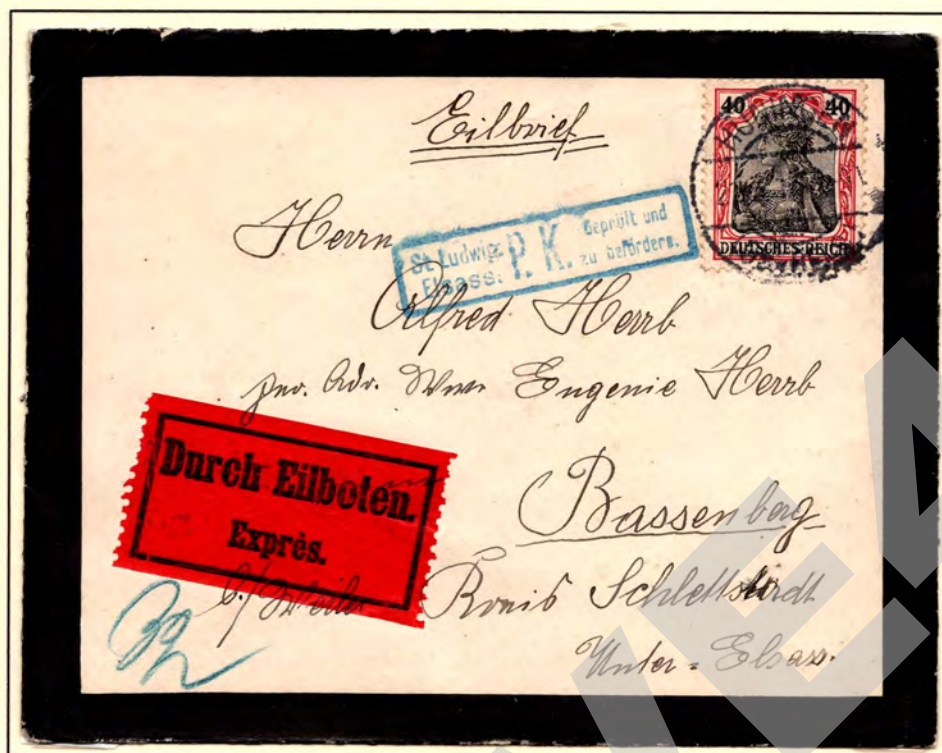 Eilbrief
40 40
DEUTSCHES REICH
Herrn
St. Ludwig Elsass. P. K. Geprüft und zu befördern.
Alfred Herrb
Adr. Wwe Eugenie Herrb
Durch Eilboten.
Exprès.
Bassenberg
b/Weiler Kreis Schlettstadt
Unter-Elsass.